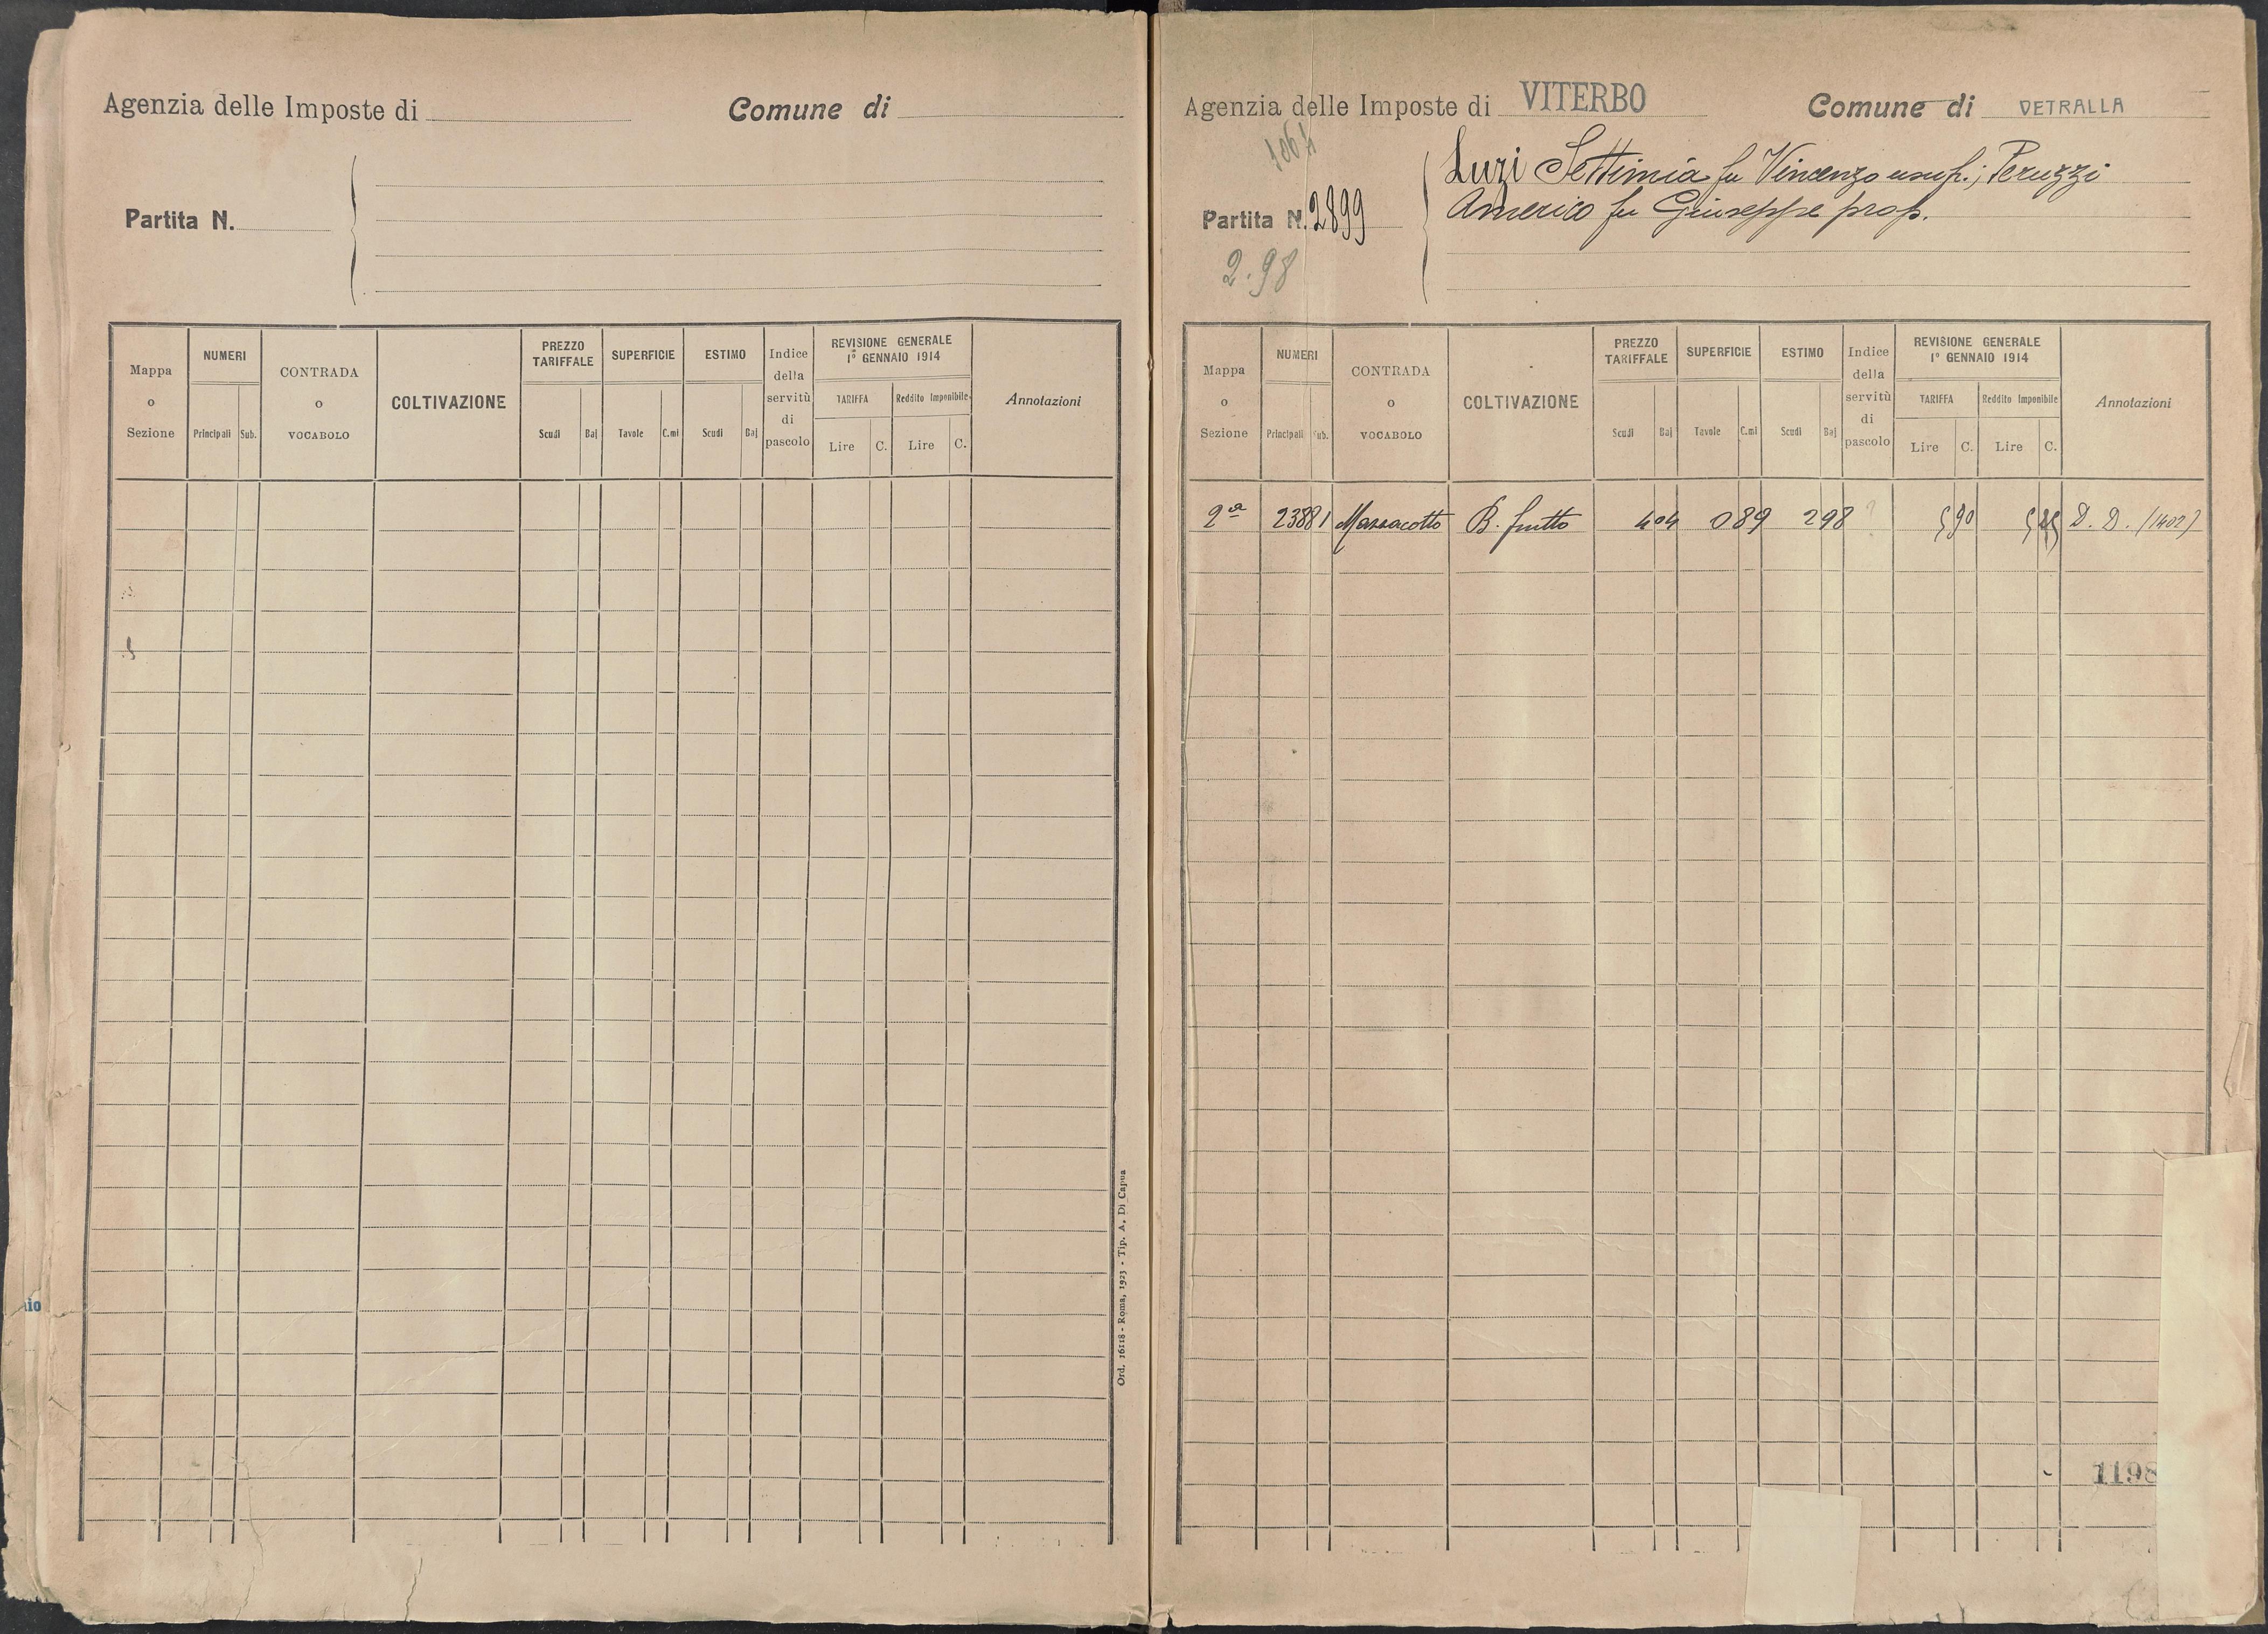 Agenzia delle Imposte di Comune di
Partita N.
Mappa o Sezione NUMERI Principali Sub. CONTRADA o VOCABOLO COLTIVAZIONE PREZZO TARIFFALE Scudi Baj SUPERFICIE Tavole C.mi ESTIMO Scudi Baj Indice della servitù di pascolo REVISIONE GENERALE 1° GENNAIO 1914 TARIFFA Lire C. Reddito Imponibile Lire C. Annotazioni
Ord. 16118 - Roma, 1923 - Tip. A. Di Capua
Agenzia delle Imposte di VITERBO Comune di VETRALLA
Luzi Settimia fu Vincenzo usuf.; Peruzzi
Partita N. 2899 Americo fu Giuseppe prop.
2.98
Mappa o Sezione NUMERI Principali Sub. CONTRADA o VOCABOLO COLTIVAZIONE PREZZO TARIFFALE Scudi Baj SUPERFICIE Tavole C.mi ESTIMO Scudi Baj Indice della servitù di pascolo REVISIONE GENERALE 1° GENNAIO 1914 TARIFFA Lire C. Reddito Imponibile Lire C. Annotazioni
2ª 2388 1 Massacotto B. frutto 4 04 0 89 2 98 5 90 5 25 D. D. (1402)
1198